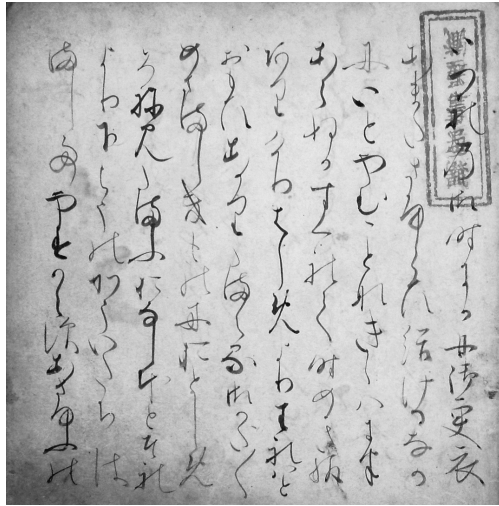 いつれの御時にか女御更衣
あまたさふらひ給けるなか
にいとやむことなきゝはには
あらぬかすくれて時めき給
ありけりはしめよりわれはと
おもひあかり給へる御かた〱
めさましきものにおとしめ
そねみ給ふおなしほとそれ
より下らうのかういたちは
ましてやすからすあさゆふの